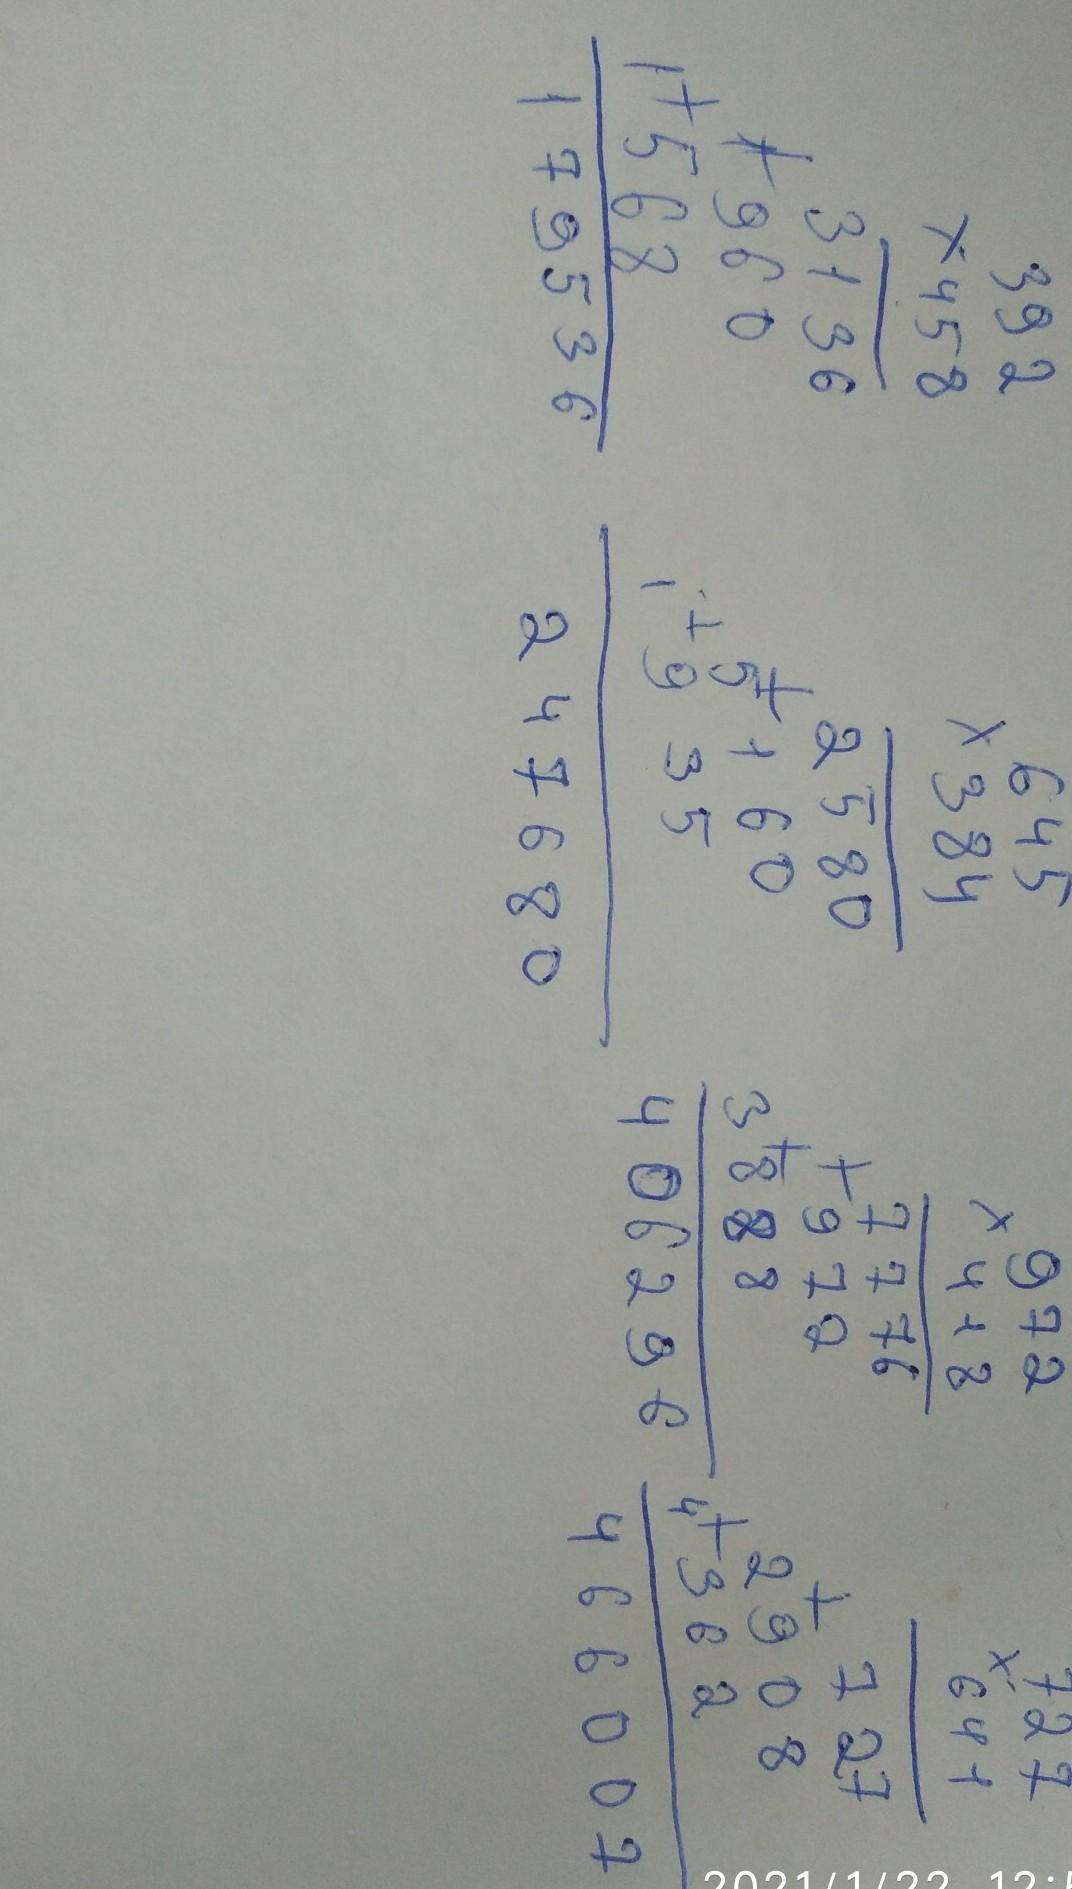 392
×458
3136
+960
+
1568
179536
645
×384
2580
+
5160
+
1935
247680
972
×418
7776
+972
+
3888
406296
727
×641
727
+
2908
+
4362
466007
2021/1/22 12:5